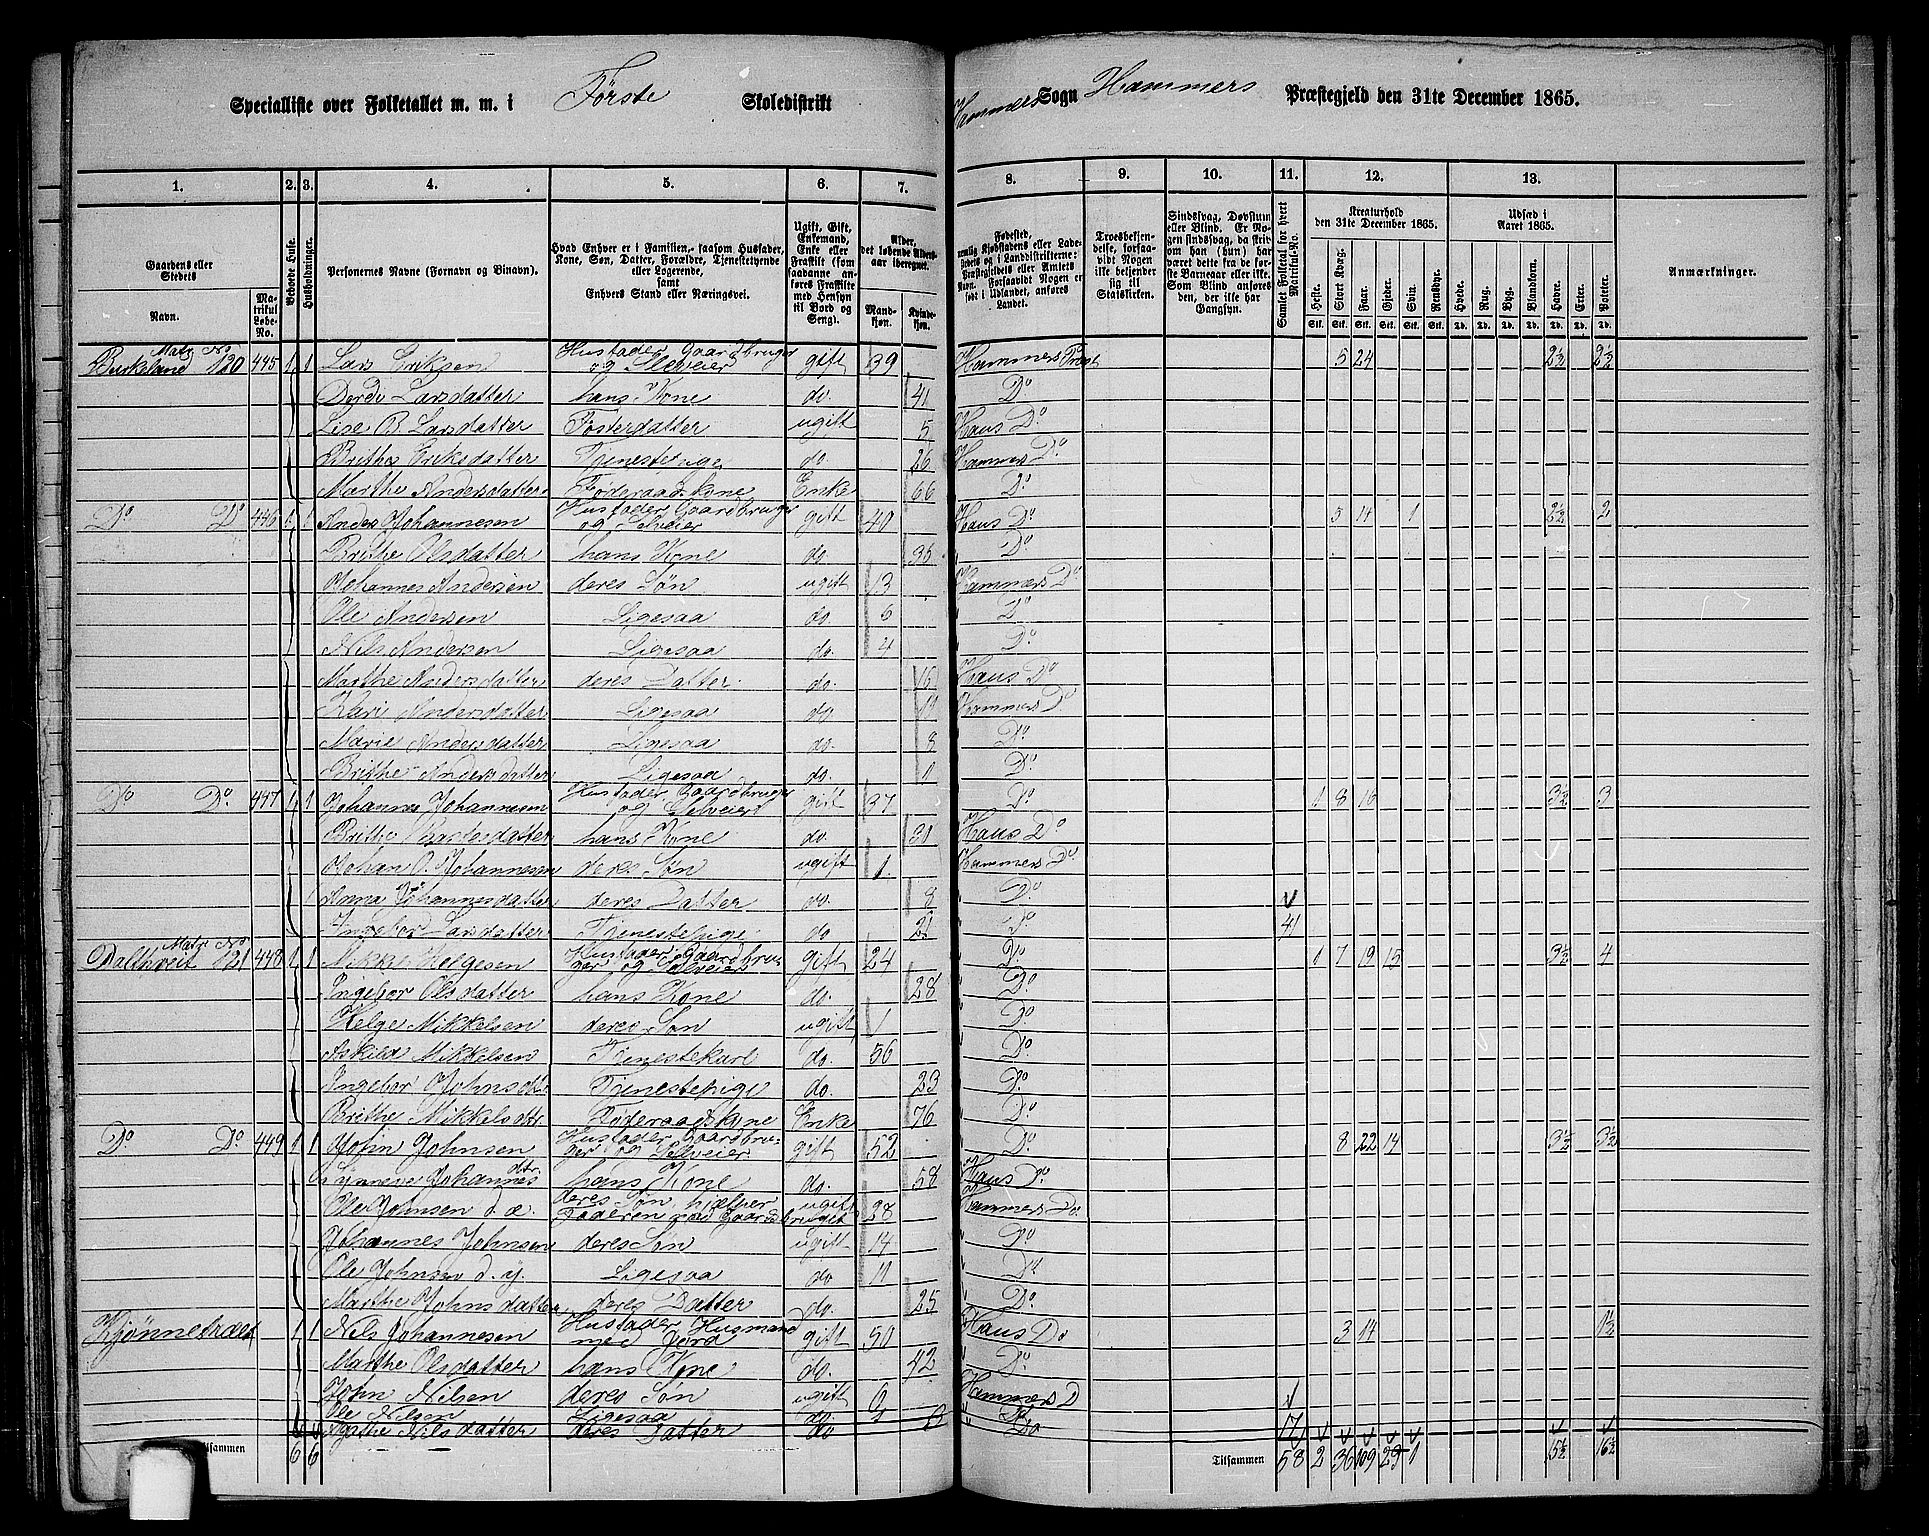 Specialliste over Folketallet m. m. i Første Skoledistrikt Hammers Sogn Hammers Præstegjeld den 31te December 1865.
1. 2. 3. 4. 5. 6. 7. 8. 9. 10. 11. 12. 13.
Gaardens eller Stedets
Navn.
Matrikul Løbe-No.
Bebode Huse.
Husholdninger.
Personernes Navne (Fornavn og Binavn).
Hvad Enhver er i Familien, saasom Husfader, Kone, Søn, Datter, Forældre, Tjenestetyende eller Logerende, samt Enhvers Stand eller Næringsvei.
Ugift, Gift, Enkemand, Enke eller Fraskilt (som saadanne anføres Fraskilte med Hensyn til Bord og Seng).
Alder, det løbende Aldersaar iberegnet.
Mandkjøn.
Kvindekjøn.
Fødested,
Troesbekjendelse, forsaavidt Nogen ikke bekjender sig til Statskirken.
Sindssvag, Døvstum eller Blind. Er Nogen sindssvag, da skrives om han (hun) har været dette fra de første Barneaar eller ikke. Som Blind anføres den, der ikke har Gangsyn.
Samlet Folketal for hvert Matrikul-No.
Kreaturhold den 31te December 1865.
Heste. Stort Kvæg. Faar. Gjeder. Sviin. Rensdyr.
Udsæd i Aaret 1865.
Hvede. Rug. Byg. Blandkorn. Havre. Erter. Poteter.
Anmærkninger.
Birkeland Matr No 120 445 1 1 Lars Eriksen Husfader Gaardbruger og Selveier gift 39 Hammers Præst 5 24 2½ 2½
Dorde Larsdatter hans Kone do. 41 Do
Lise B Larsdatter Fosterdatter ugift 5 Haus Do
Brithe Eriksdatter Tjenestepige do. 26 Hammers Do
Marthe Andersdatter Føderaadskone Enke 66 Do
Do Do 446 1 1 Anders Johannesen Husfader Gaardbruger og Selveier gift 40 Haus Do 5 14 1 2½ 2
Brithe Olsdatter hans Kone do. 35 Do
Johannes Andersen deres Søn ugift 13 Hammers Do
Ole Andersen Ligesaa do. 6 Do
Nils Andersen Ligesaa do. 4 Do
Marthe Andersdatter deres Datter do. 16 Haus Do
Kari Andersdatter Ligesaa do. 11 Hammers Do
Marie Andersdatter Ligesaa do. 8 Do
Brithe Andersdatter Ligesaa do. 1 Do
Do Do 447 1 1 Johannes Johannesen Husfader Gaardbruger og Selveier gift 37 Do 1 8 16 3½ 3
Brithe hans Kone do 31 Haus Do
Johan O. Johannesen deres Søn ugift 1 Hammers Do
Anna Johannesdatter deres Datter do. 8 Do
Ingebor Larsdatter Tjenestepige do 21 Do 41
Dalthveit Matr No 121 448 1 1 Mikkel Helgesen Husfader Gaardbruger og Selveier gift 24 Do 1 7 19 15 3½ 4
Ingebor Olsdatter hans Kone do. 28 Do
Helge Mikkelsen deres Søn ugift 1 Do
Askild Mikkelsen Tjenestekarl do. 56 Do
Ingebor Johnsdtr Tjenestepige do. 23 Do
Brithe Mikkelsdtr. Føderaadskone Enke 76 Do
Do Do 449 1 1 John Johnsen Husfader Gaardbruger og Selveier gift 52 Do 8 22 14 3½ 3½
Synneve Johannesdtr. hans Kone do. 58 Haus Do
Ole Johnsen d. æ. deres Søn hjælper Faderen med Gaardsbruget ugift 28 Hammers Do
Johannes Johnsen deres Søn ugift 14 Do
Ole Johnsen d. y. Ligesaa do 11 Do
Marthe Johnsdatter deres Datter do. 25 Do
Kjønnehæl 1 1 Nils Johannesen Husfader Husmand med Jord gift 50 Haus Do 3 14 1½
Marthe Olsdatter hans Kone do. 42 Do
John Nilsen deres Søn ugift 6 Hammers D
Ole Nilsen Ligesaa do.
Agathe Nilsdatter deres Datter do Do 17
Tilsammen 6 6 Tilsammen 58 2 36 109 29 1 15½ 16½